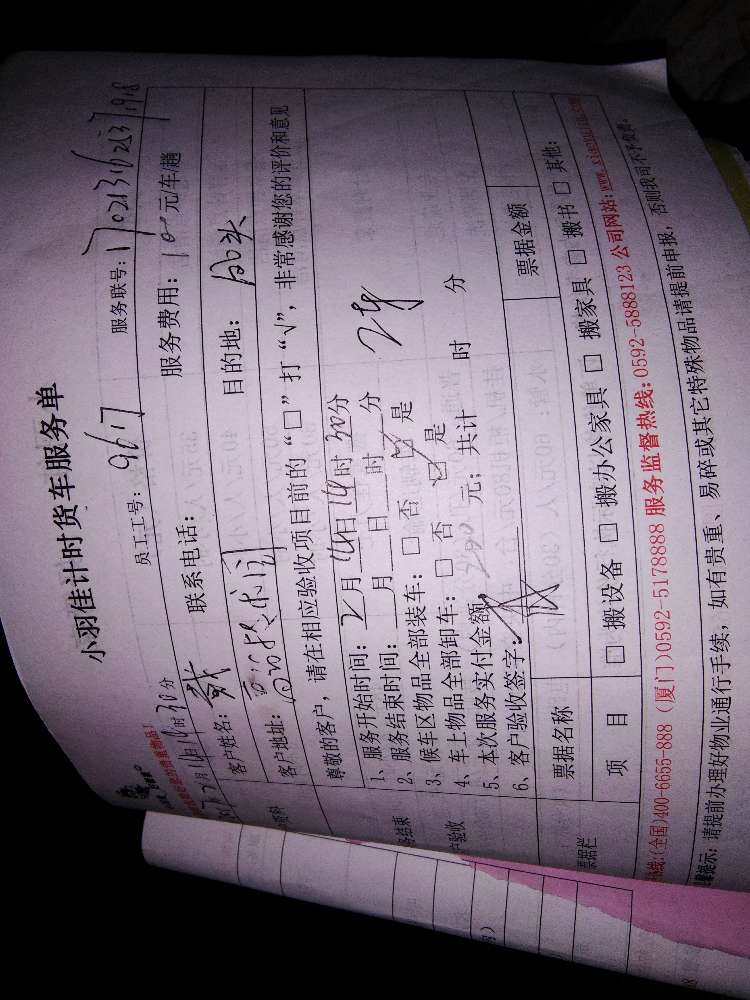 小羽佳计时货车服务单
员工工号: 9617 服务联号:
月14日14时30分
客户姓名: 戴 联系电话: 服务费用: 元/车/趟
客户地址: 目的地:
尊敬的客户，请在相应验收项目前的“□”打“√”，非常感谢您的评价和意见
1、服务开始时间: 2月14日14时30分
2、服务结束时间: 月 日 时 分
3、候车区物品全部装车: □ 否 ☑ 是
4、车上物品全部卸车: □ 否 ☑ 是
5、本次服务实付金额 200 元; 共计 时 分
6、客户验收签字:
票据名称 票据金额
项 目 □ 搬设备 □ 搬办公家具 □ 搬家具 □ 搬书 □ 其他:
热线:(全国)400-6655-888 (厦门)0592-5178888 服务监督热线:0592-5888123 公司网站:
提示: 请提前办理好物业通行手续，如有贵重、易碎或其它特殊物品请提前申报，否则我司不予负责。